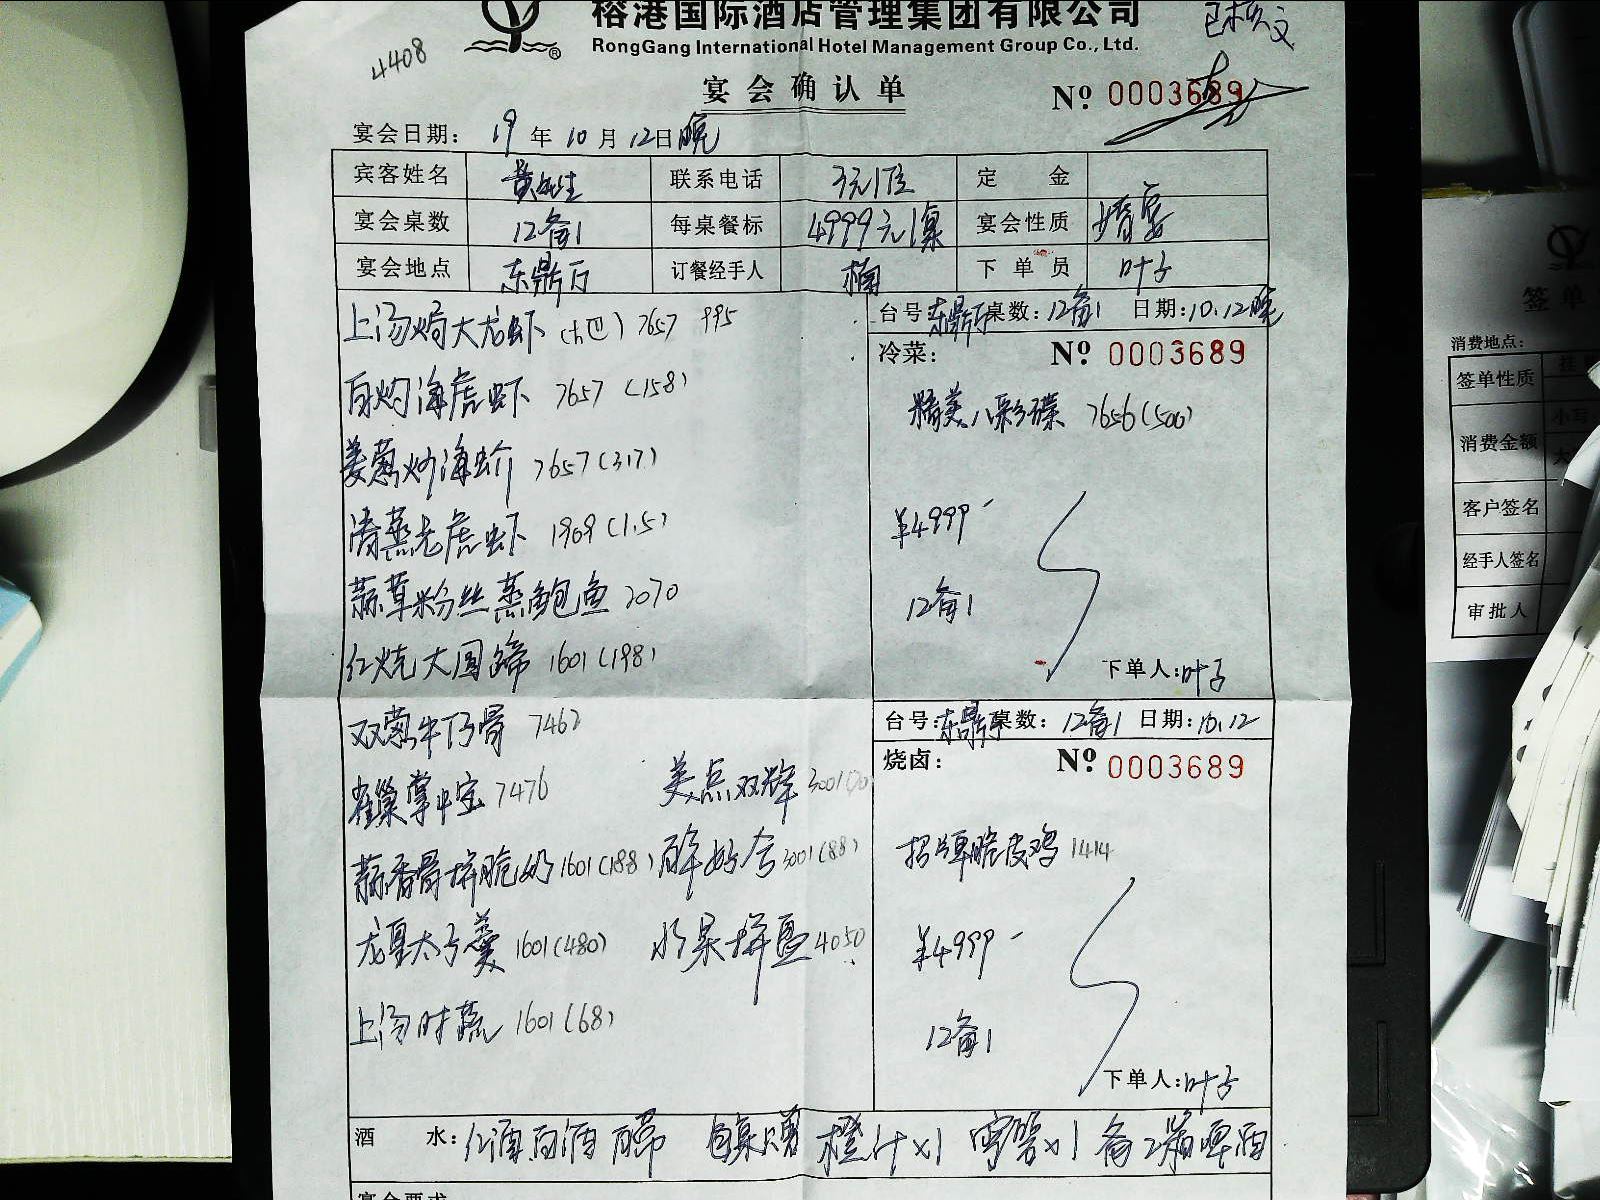 榕港国际酒店管理集团有限公司
RongGang International Hotel Management Group Co., Ltd.
®
4408
宴会确认单
№ 0003689
宴会日期: 19 年 10 月 12 日晚
宾客姓名 黄先生 联系电话 3元/位 定金
宴会桌数 12备1 每桌餐标 4999元/桌 宴会性质 婚宴
宴会地点 东鼎厅 订餐经手人 楠 下单员 叶子
上汤焗大龙虾 7657 995
白灼海虎虾 7657 (158)
姜葱炒海蚧 7657 (317)
清蒸老虎虾 1969 (1.5)
蒜茸粉丝蒸鲍鱼 2070
红烧大圆蹄 1601 (198)
双葱牛仔骨 7462
雀巢掌中宝 7476
美点双辉 3001
蒜香骨拼脆奶 1601 (188)
3001 (88)
龙皇太子羹 1601 (480)
水果拼盘 4050
上汤时蔬 1601 (68)
台号: 东鼎厅 桌数: 12备1 日期: 10.12晚
冷菜: № 0003689
精美八彩碟 7656 (500)
¥4999-
12备1
下单人: 叶子
台号: 东鼎厅 桌数: 12备1 日期: 10.12
烧卤: № 0003689
招牌脆皮鸡 1414
¥4999-
12备1
下单人: 叶子
酒水: 红酒白酒自带 每桌只赠橙汁x1 雪碧x1 备2箱啤酒
宴会要求
签单
消费地点:
签单性质 挂
消费金额 小写
大
客户签名
经手人签名
审批人